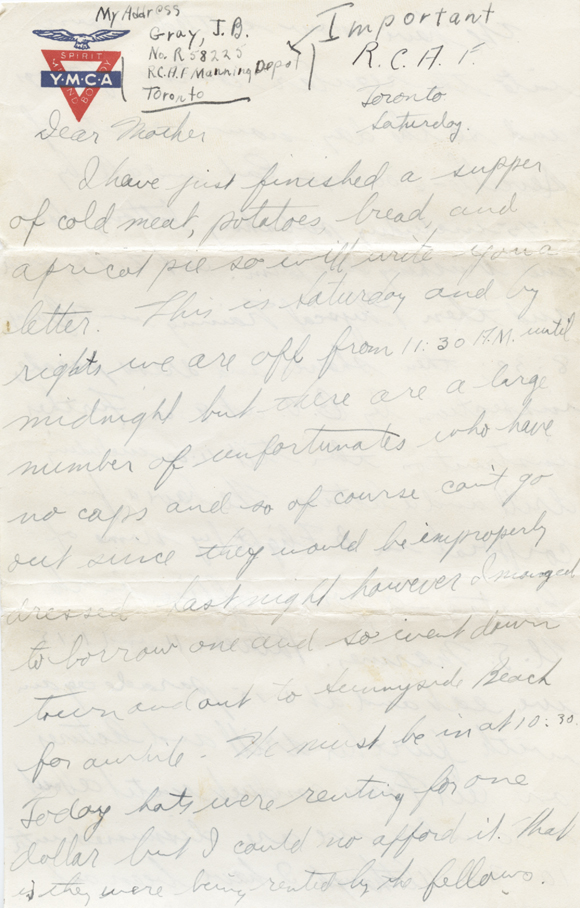 My Address
Gray, J.B.
No. R 58225
R.C.A.F Manning Depot
Toronto
Important
R.C.A.F.
Toronto
Saturday.
SPIRIT
Y·M·C·A
MIND BODY
Dear Mother
I have just finished a supper
of cold meat, potatoes, bread, and
apricot pie so will write you a
letter. This is Saturday and by
rights we are off from 11:30 A.M. until
midnight but there are a large
number of unfortunates who have
no caps and so of course can't go
out since they would be improperly
dressed. Last night however I manged
to borrow one and so went down
town and out to Sunnyside Beach
for awhile. We must be in at 10:30.
Today hats were renting for one
dollar but I could no afford it. That
is they were being rented by the fellows.